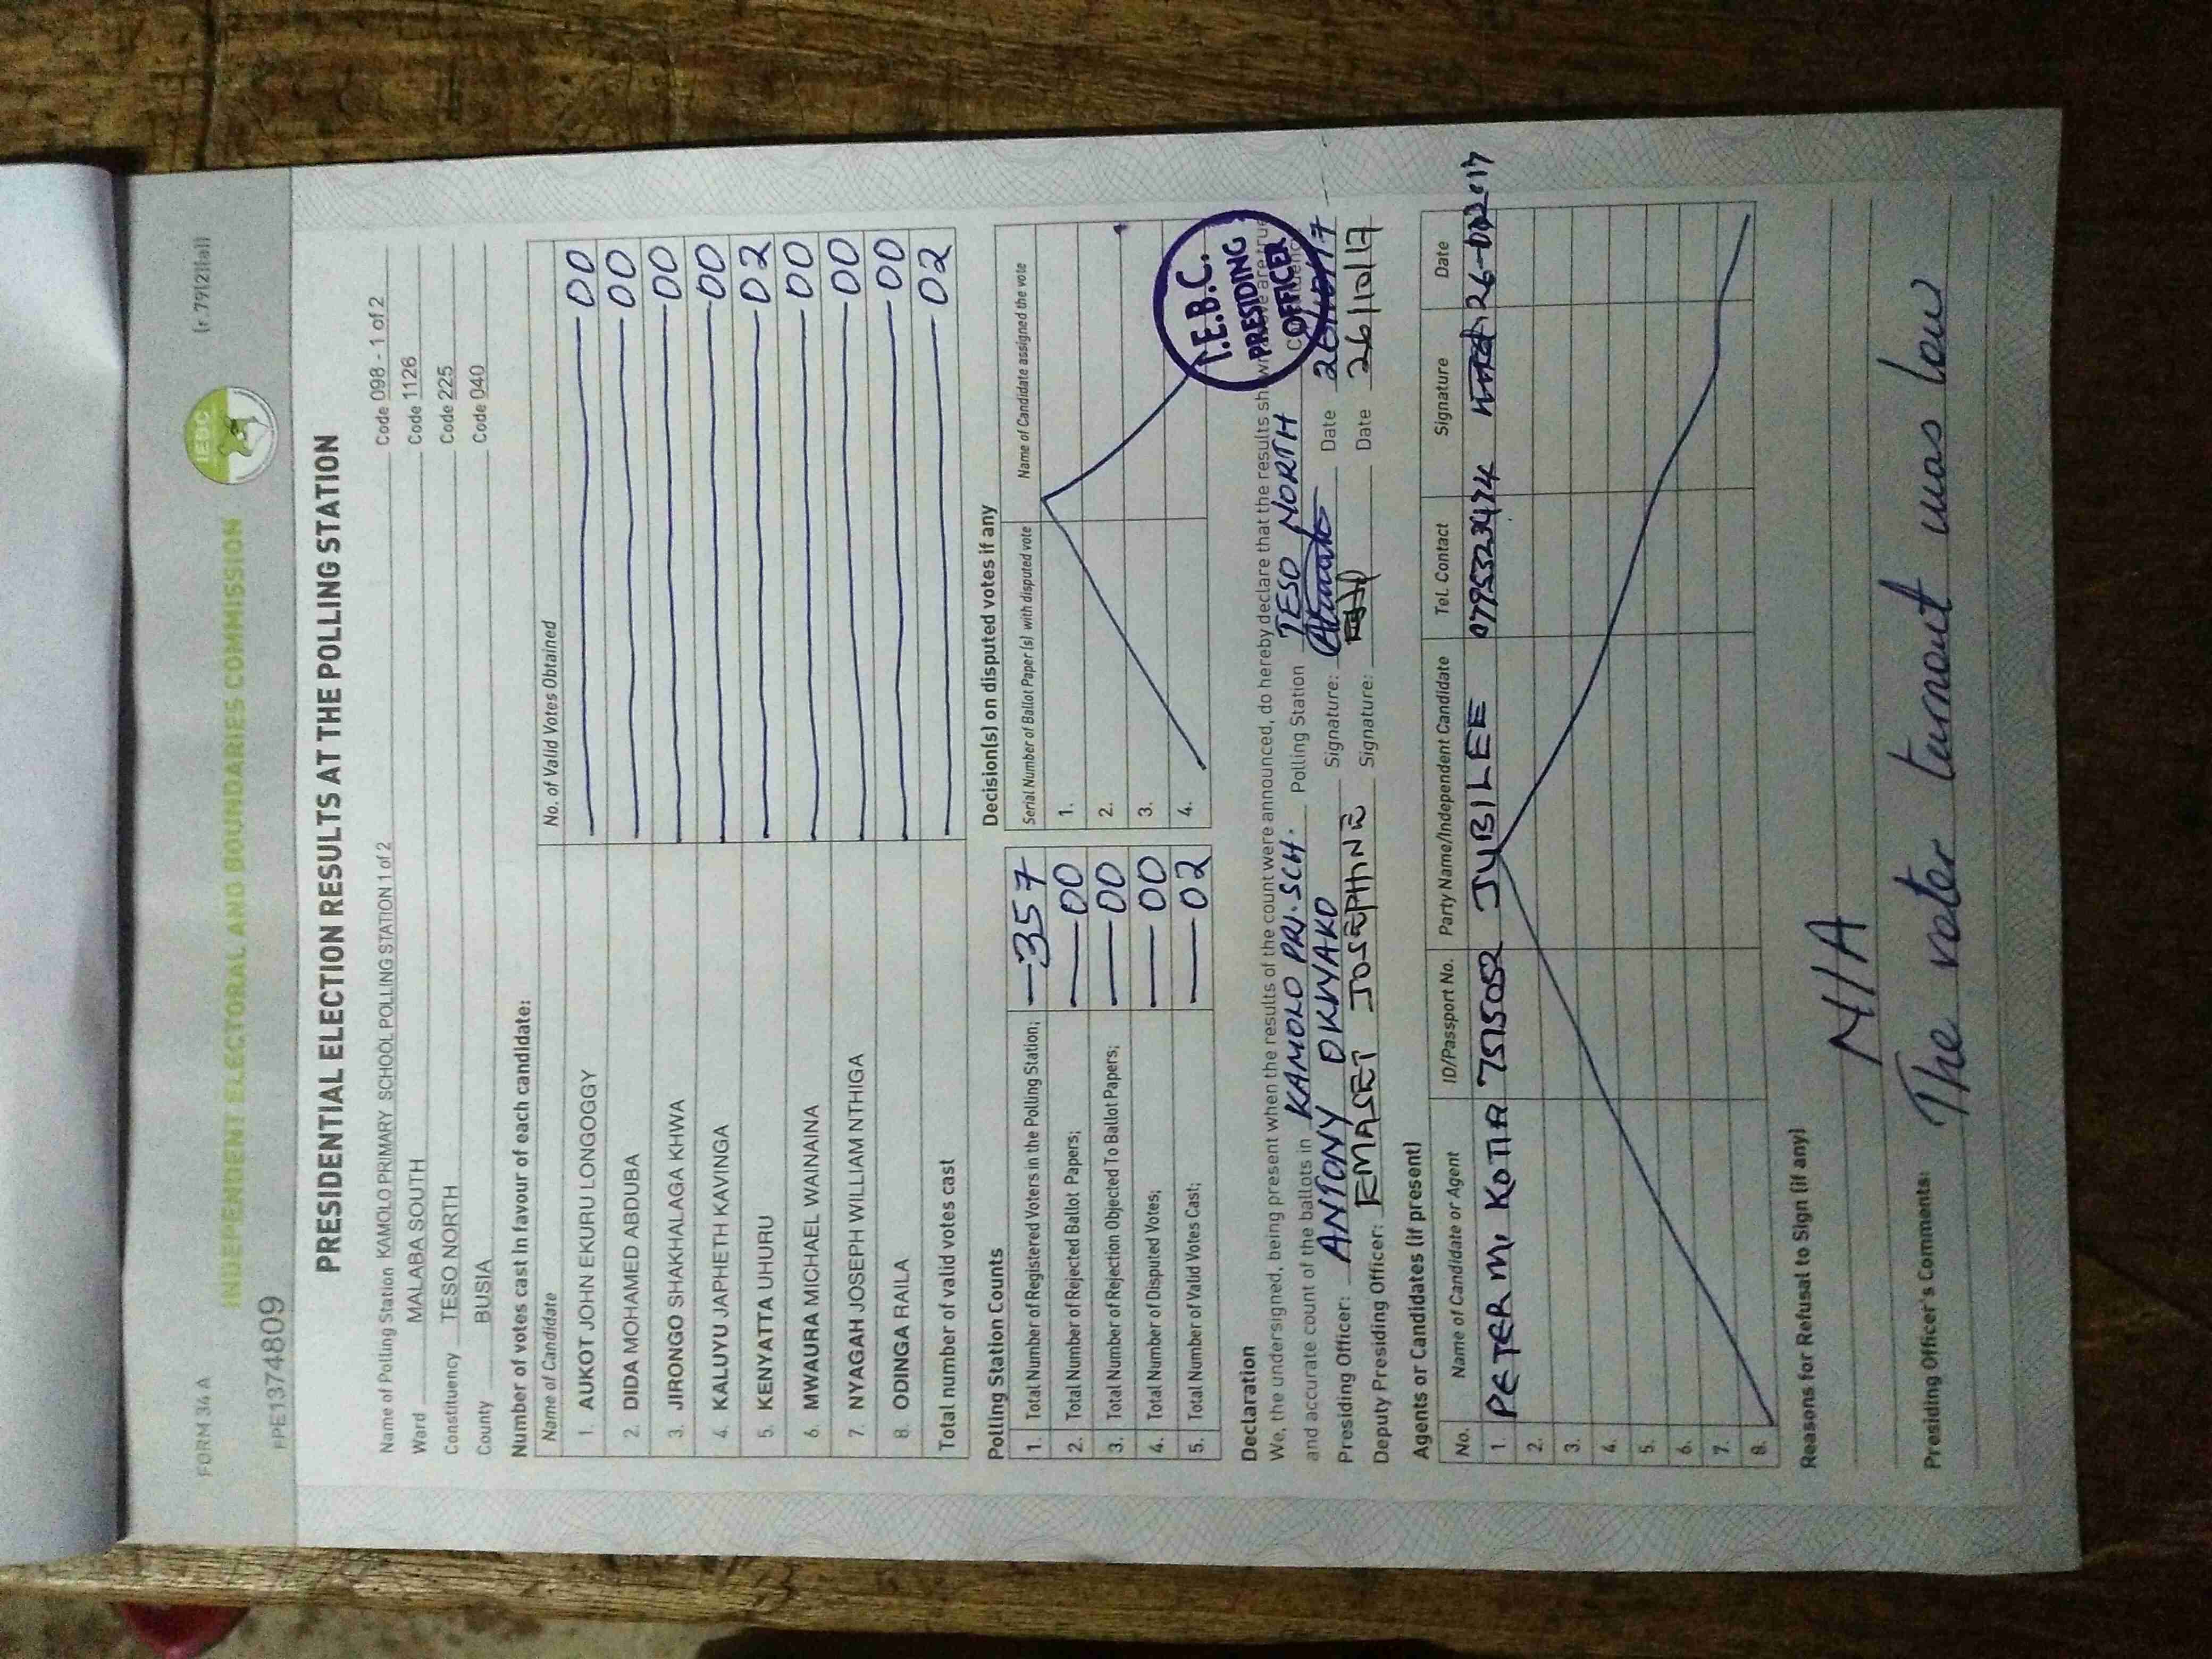 FORM 34 A
(r.79(2)(a))
IEBC
INDEPENDENT ELECTORAL AND BOUNDARIES COMMISSION
PPE1374809
PRESIDENTIAL ELECTION RESULTS AT THE POLLING STATION
Name of Polling Station KAMOLO PRIMARY SCHOOL POLLING STATION 1 of 2 Code 098 - 1 of 2
Ward MALABA SOUTH Code 1126
Constituency TESO NORTH Code 225
County BUSIA Code 040
Number of votes cast in favour of each candidate:
Name of Candidate No. of Valid Votes Obtained
1. AUKOT JOHN EKURU LONGOGGY 00
2. DIDA MOHAMED ABDUBA 00
3. JIRONGO SHAKHALAGA KHWA 00
4. KALUYU JAPHETH KAVINGA 00
5. KENYATTA UHURU 02
6. MWAURA MICHAEL WAINAINA 00
7. NYAGAH JOSEPH WILLIAM NTHIGA 00
8. ODINGA RAILA 00
Total number of valid votes cast 02
Polling Station Counts
1. Total Number of Registered Voters in the Polling Station; 357
2. Total Number of Rejected Ballot Papers; 00
3. Total Number of Rejection Objected To Ballot Papers; 00
4. Total Number of Disputed Votes; 00
5. Total Number of Valid Votes Cast; 02
Decision(s) on disputed votes if any
Serial Number of Ballot Paper (s) with disputed vote Name of Candidate assigned the vote
1.
2.
3.
4.
I.E.B.C.
PRESIDING
OFFICER
Declaration
We, the undersigned, being present when the results of the count were announced, do hereby declare that the results are true
and accurate count of the ballots in KAMOLO PRI. SCH. Polling Station TESO NORTH
Presiding Officer: ANTONY OKWAKO Signature: Date 26/10/17
Deputy Presiding Officer: EMASET JOSEPHINE Signature: Date 26/10/17
Agents or Candidates (if present)
No. Name of Candidate or Agent ID/Passport No. Party Name/Independent Candidate Tel. Contact Signature Date
1. PETER M. KOTIA JUBILEE
2.
3.
4.
5.
6.
7.
8.
Reasons for Refusal to Sign (if any)
N/A
Presiding Officer's Comments:
The voter turnout was low